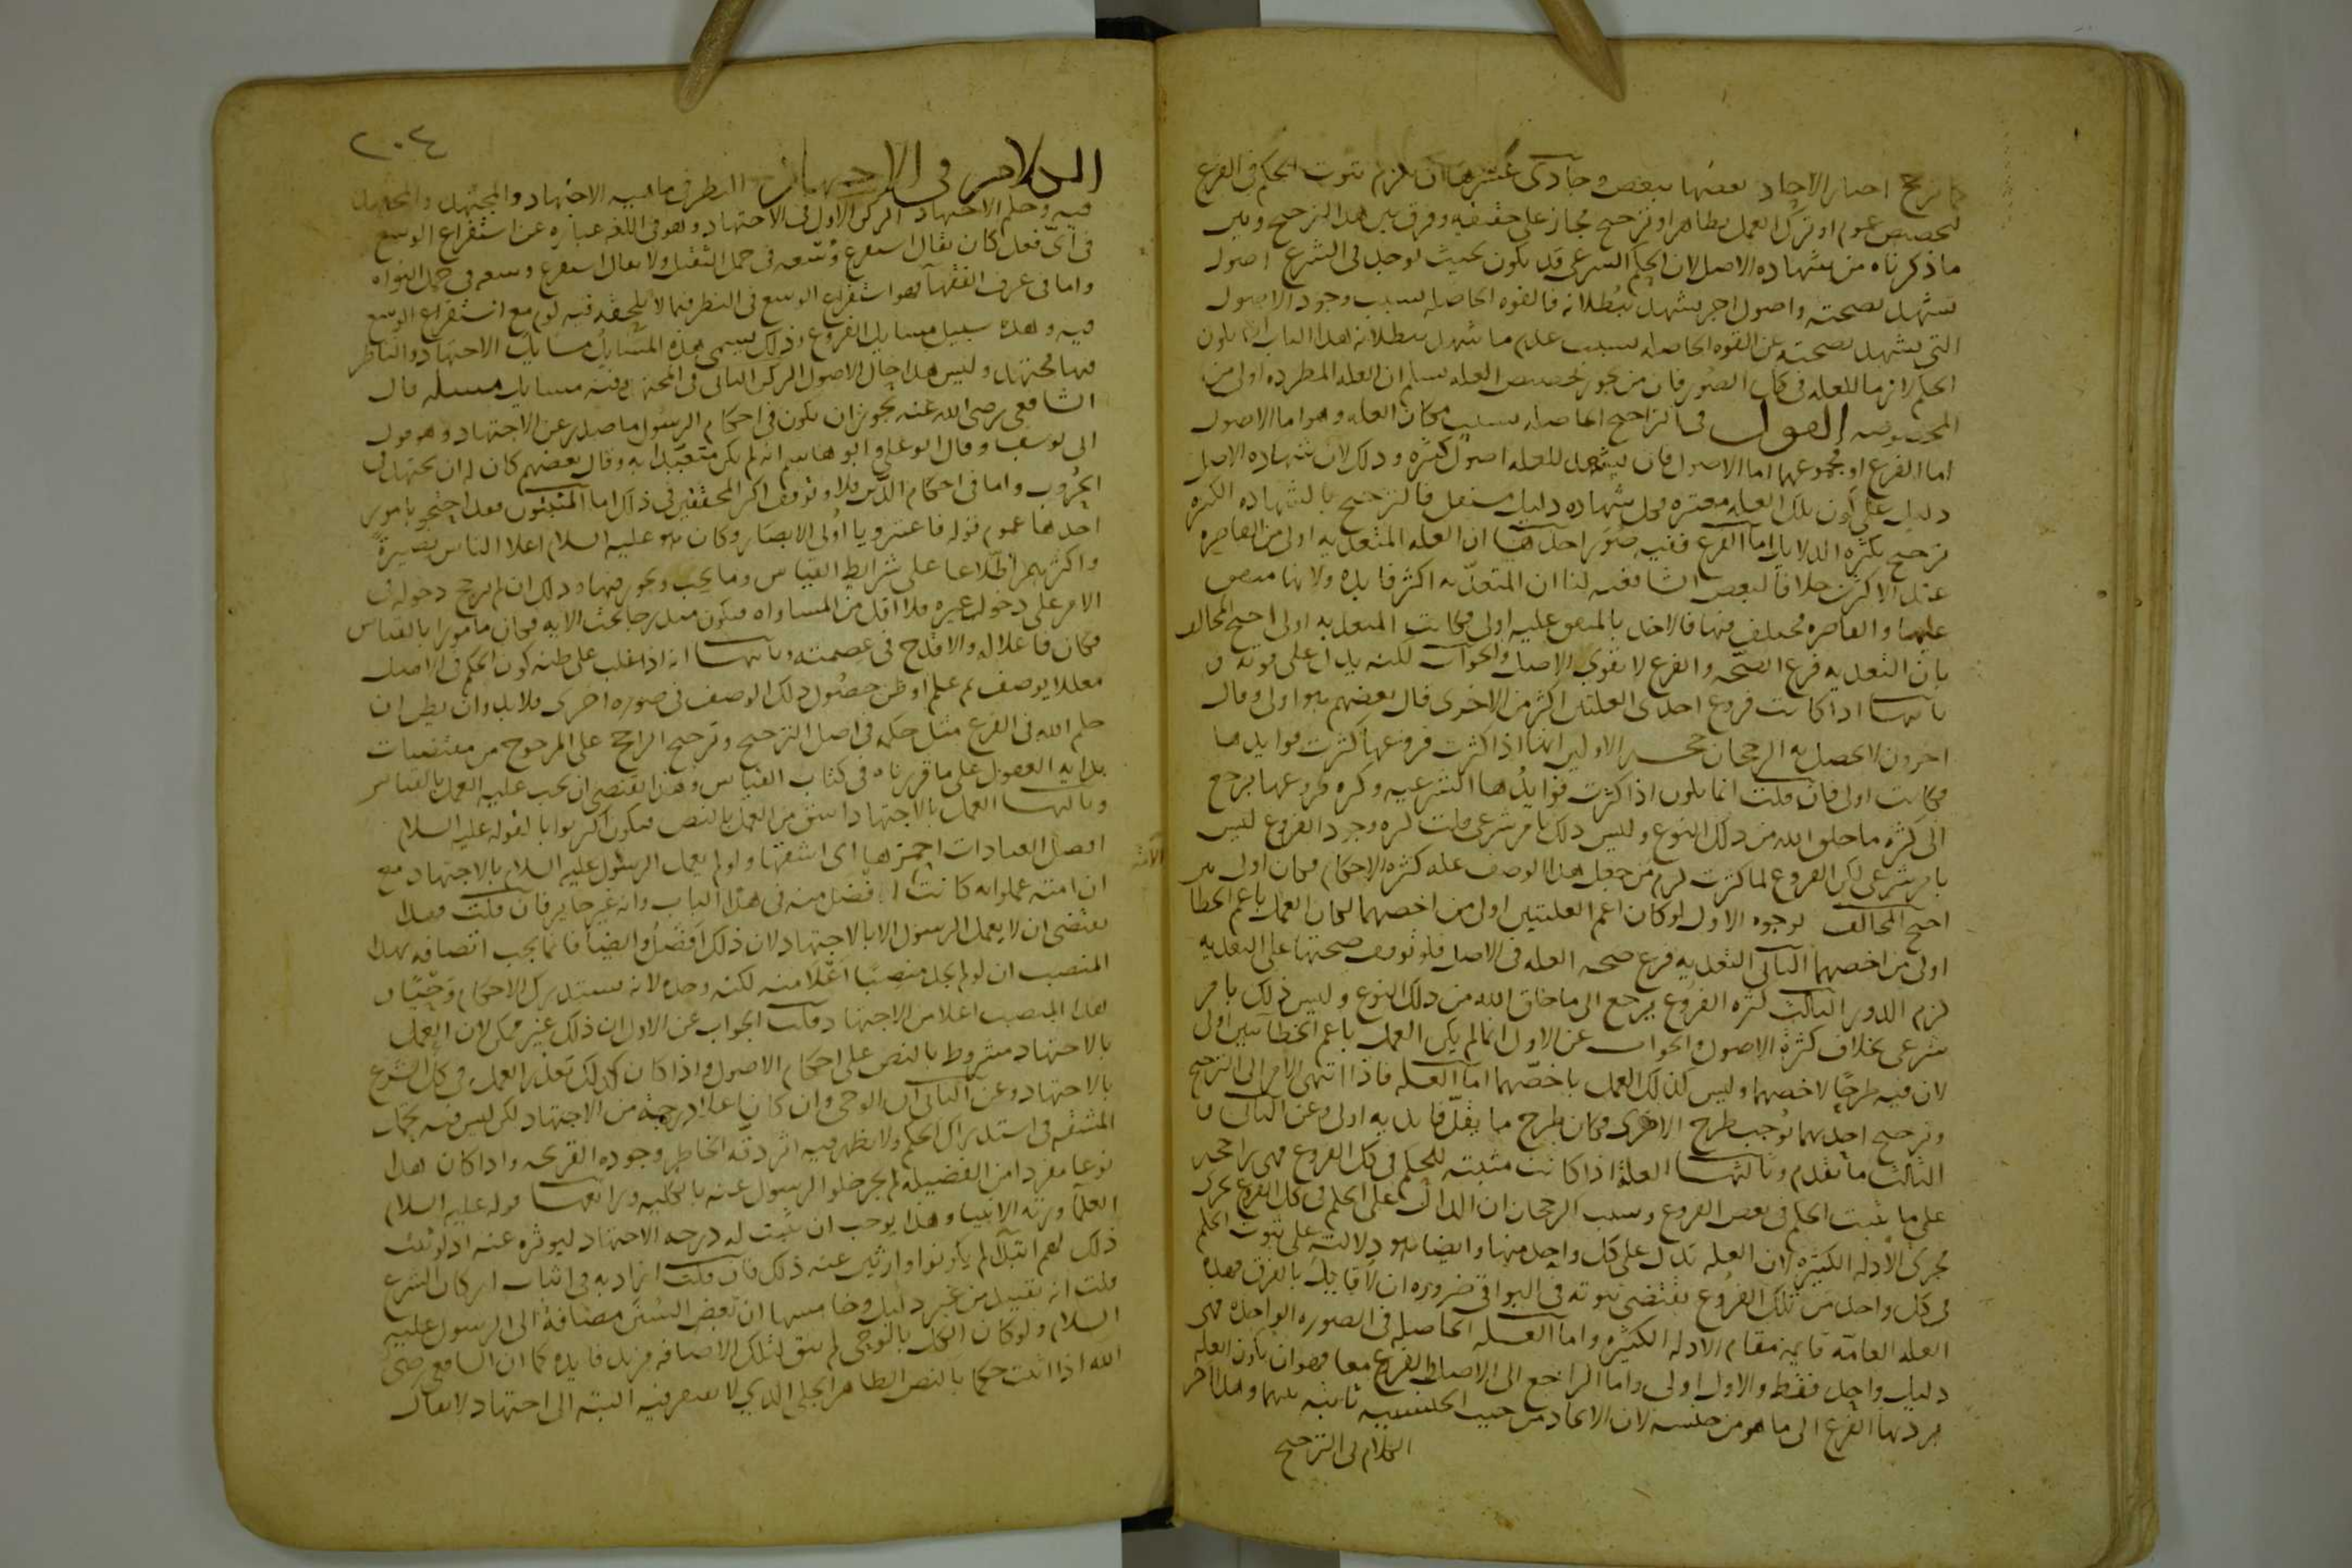 كما ترجح اخبار الاحاد بعضها ببعض وحادى عشرها ان يلزم ثبوت الحكم فى الفرع
تخصيص عموم او ترك العمل بظاهر او ترجيح مجاز على حقيقه وفرق بين هذا الترجيح وبين
ما ذكرناه من شهاده الاصل لان الحكم الشرعى قد يكون بحيث يوجد فى الشرع اصول
تشهد بصحته واصول اخر يشهد ببطلانه فالقوه الحاصله بسبب وجود الاصول
التى يشهد بصحته غير القوه الحاصله بسبب عدم ما يشهد ببطلانه هذا الثانى ان يكون
الحكم لازما للعله فى كل الصور فان من يجوز تخصيص العله يسلم ان العله المطرده اولى من
المخصوصه القول فى التراجيح الحاصله بسبب مكان العله وهو اما الاصول
اما الفرع او مجموعهما اما الاصول فان يشهد للعله اصول كثيره وذلك لان شهاده الاصل
دليل على كون تلك العله معتبره فكل شهاده دليل مستقل فالترجيح بالشهاده الكثيره
ترجيح بكثره الدلايل اما الفرع ففيه صور احدها ان العله المتعديه اولى من القاصره
عند الاكثرين خلافا لبعض الشافعيه لنا ان المتعديه اكثر فايده ولانها متفق
عليها والقاصره مختلف فيها فالاخذ بالمتفق عليه اولى فكانت المتعديه اولى احتج المخالف
بان التعديه فرع الصحه والفرع لا يقوى الاصل والجواب لكنه يدل على قوته و
ثانيها اذا كانت فروع احدى العلتين اكثر من الاخرى قال بعضهم هو اولى وقال
اخرون لا يحصل به الرجحان حجه الاولين انها اذا كثرت فروعها كثرت فوايدها
فكانت اولى فان قلت انما يكون اذا كثرت فوايدها الشرعيه وكثره فروعها يرجع
الى كثره ما خلق الله من ذلك النوع وليس ذلك بامر شرعى قلت كثره وجود الفروع ليس
بامر شرعى لكن الفروع لما كثرت لزم من جعل هذا الوصف عله كثره الاحكام فكان اولى من
احتج المخالف بوجوه الاول لو كان اعم العلتين اولى من اخصهما لكان العمل باعم الخطابين
اولى من اخصهما الثانى التعديه فرع صحه العله فى الاصل فلو توقف صحتها على التعديه
لزم الدور الثالث كثره الفروع يرجع الى ما خلق الله من ذلك النوع وليس ذلك بامر
شرعى بخلاف كثرة الاصول والجواب عن الاول انما لم يكن العمل باعم الخطابين اولى
لان فيه طرحا لاخصهما وليس كذلك العمل باخصهما اما العله فاذا انتهى الامر الى الترجيح
وترجيح احديهما توجب طرح الاخرى فكان طرح ما يقل فايدته اولى وعن الثانى و
الثالث ما تقدم وثالثها العلة اذا كانت مثبته للحكم فى كل الفروع فهى راجحه
على ما يثبت الحكم فى بعض الفروع وسبب الرجحان ان الدال على الحكم فى كل الفروع يجرى
مجرى الادله الكثيره لان العله تدل على كل واحد منها وايضا فهو دلالته على ثبوت الحكم
فى كل واحد من تلك الفروع يقتضى ثبوته فى البواقى ضروره ان لا قايل بالفرق فهذه
العله العامة قايمه مقام الادله الكثيره واما العله الحاصله فى الصوره الواحده فهى
دليل واحد فقط والاول اولى واما الراجع الى الاصل والفرع معا فهو ان يكون العله
يرد بها الفرع الى ما هو من جنسه لان الاتحاد من حيث الجنسيه ثابته بينهما وهذا اخر
الكلام فى الترجيح
٢٠٤
الكلام فى الاجتهاد النظر فى ماهيه الاجتهاد والمجتهد والمجتهد
فيه وحكم الاجتهاد الركن الاول فى الاجتهاد وهو فى اللغه عباره عن استفراغ الوسع
فى اى فعل كان يقال استفرغ وسعه فى حمل الثقيل ولا يقال استفرغ وسعه فى حمل النواه
واما فى عرف الفقهآ فهو استفراغ الوسع فى النظر فيما لا يلحقه فيه لوم مع استفراغ الوسع
فيه وهذه سبيل مسايل الفروع وذلك يسمى هذه المسايل مسايل الاجتهاد والناظر
فيها مجتهد وليس هذا حال الاصول الركن الثانى فى المجتهد وفيه مسايل مسله قال
الشافعى رضى الله عنه يجوز ان يكون فى احكام الرسول ما صدر عن الاجتهاد وهو قول
ابى يوسف وقال ابو على وابو هاشم انه لم يكن متعبدا به وقال بعضهم كان له ان يجتهد فى
الحروب واما فى احكام الدين فلا وتوقف اكثر المحققين فى ذلك اما المثبتون فقد احتج بامور
احدها عموم قوله فاعتبروا يا اولى الابصار وكان هو عليه السلام اعلا الناس بصيرة
واكثرهم اطلاعا على شرايط القياس وما يجب ويجوز فيها وذلك ان لم يرجح دخوله فى
الامر على دخول غيره فلا اقل من المساواه فيكون مندرجا تحت الايه فكان مامورا بالقياس
فكان فاعلا له والا قدح فى عصمته وثانيها انه اذا غلب على ظنه كون الحكم فى الاصل
معللا بوصف ثم علم او ظن حصول ذلك الوصف فى صوره اخرى فلا بد وان يظن ان
حكم الله فى الفرع مثل حكمه فى اصل الترجيح وترجيح الراجح على المرجوح من مقتضيات
بدايه العقول على ما قررناه فى كتاب القياس وهذا يقتضى ان يجب عليه العمل بالقياس
وثالثها العمل بالاجتهاد اشق من العمل بالنص فيكون اكثر ثوابا لقوله عليه السلام
افضل العبادات احمزها اى اشقها ولو لم يعمل الرسول عليه السلام بالاجتهاد مع
ان امته عملوا به كانت افضل منه فى هذا الباب وانه غير جايز فان قلت فهذا
يقتضى ان لا يعمل الرسول الا بالاجتهاد لان ذلك افضل وايضا فانما يجب اتصافه بهذا
المنصب ان لو لم يجد منصبا اعلا منه لكنه وجده لانه يستدرك الاحكام وحيا و
هذا المنصب اعلا من الاجتهاد قلت الجواب عن الاول ان ذلك غير ممكن لان العمل
بالاجتهاد مشروط بالنص على احكام الاصول واذا كان كذلك تعذر العمل فى كل الشرع
بالاجتهاد وعن الثانى ان الوحى وان كان اعلا درجة من الاجتهاد لكن ليس فيه تحمل
المشقه فى استدراك الحكم ولا يظهر فيه اثر دقه الخاطر وجوده القريحه واذا كان هذا
نوعا مفردا من الفضيله لم يجز خلو الرسول عنه بالكليه ورابعها قوله عليه السلام
العلمآ ورثه الانبيا وهذا يوجب ان يثبت له درجه الاجتهاد ليورثوه عنه اذ لو ثبت
ذلك لهم ابتدآ لم يكونوا وارثين عنه ذلك فان قلت اراد به فى اثبات اركان الشرع
قلت انه تقييد من غير دليل وخامسها ان بعض السنن مضافة الى الرسول عليه
السلام ولو كان الكل بالوحى لم يبق لتلك الاضافه مزيد فايده كما ان الشافعى رضى
الله اذا اثبت حكما بالنص الظاهر الجلى الذى لا يفتقر فيه البته الى اجتهاد لا يقال